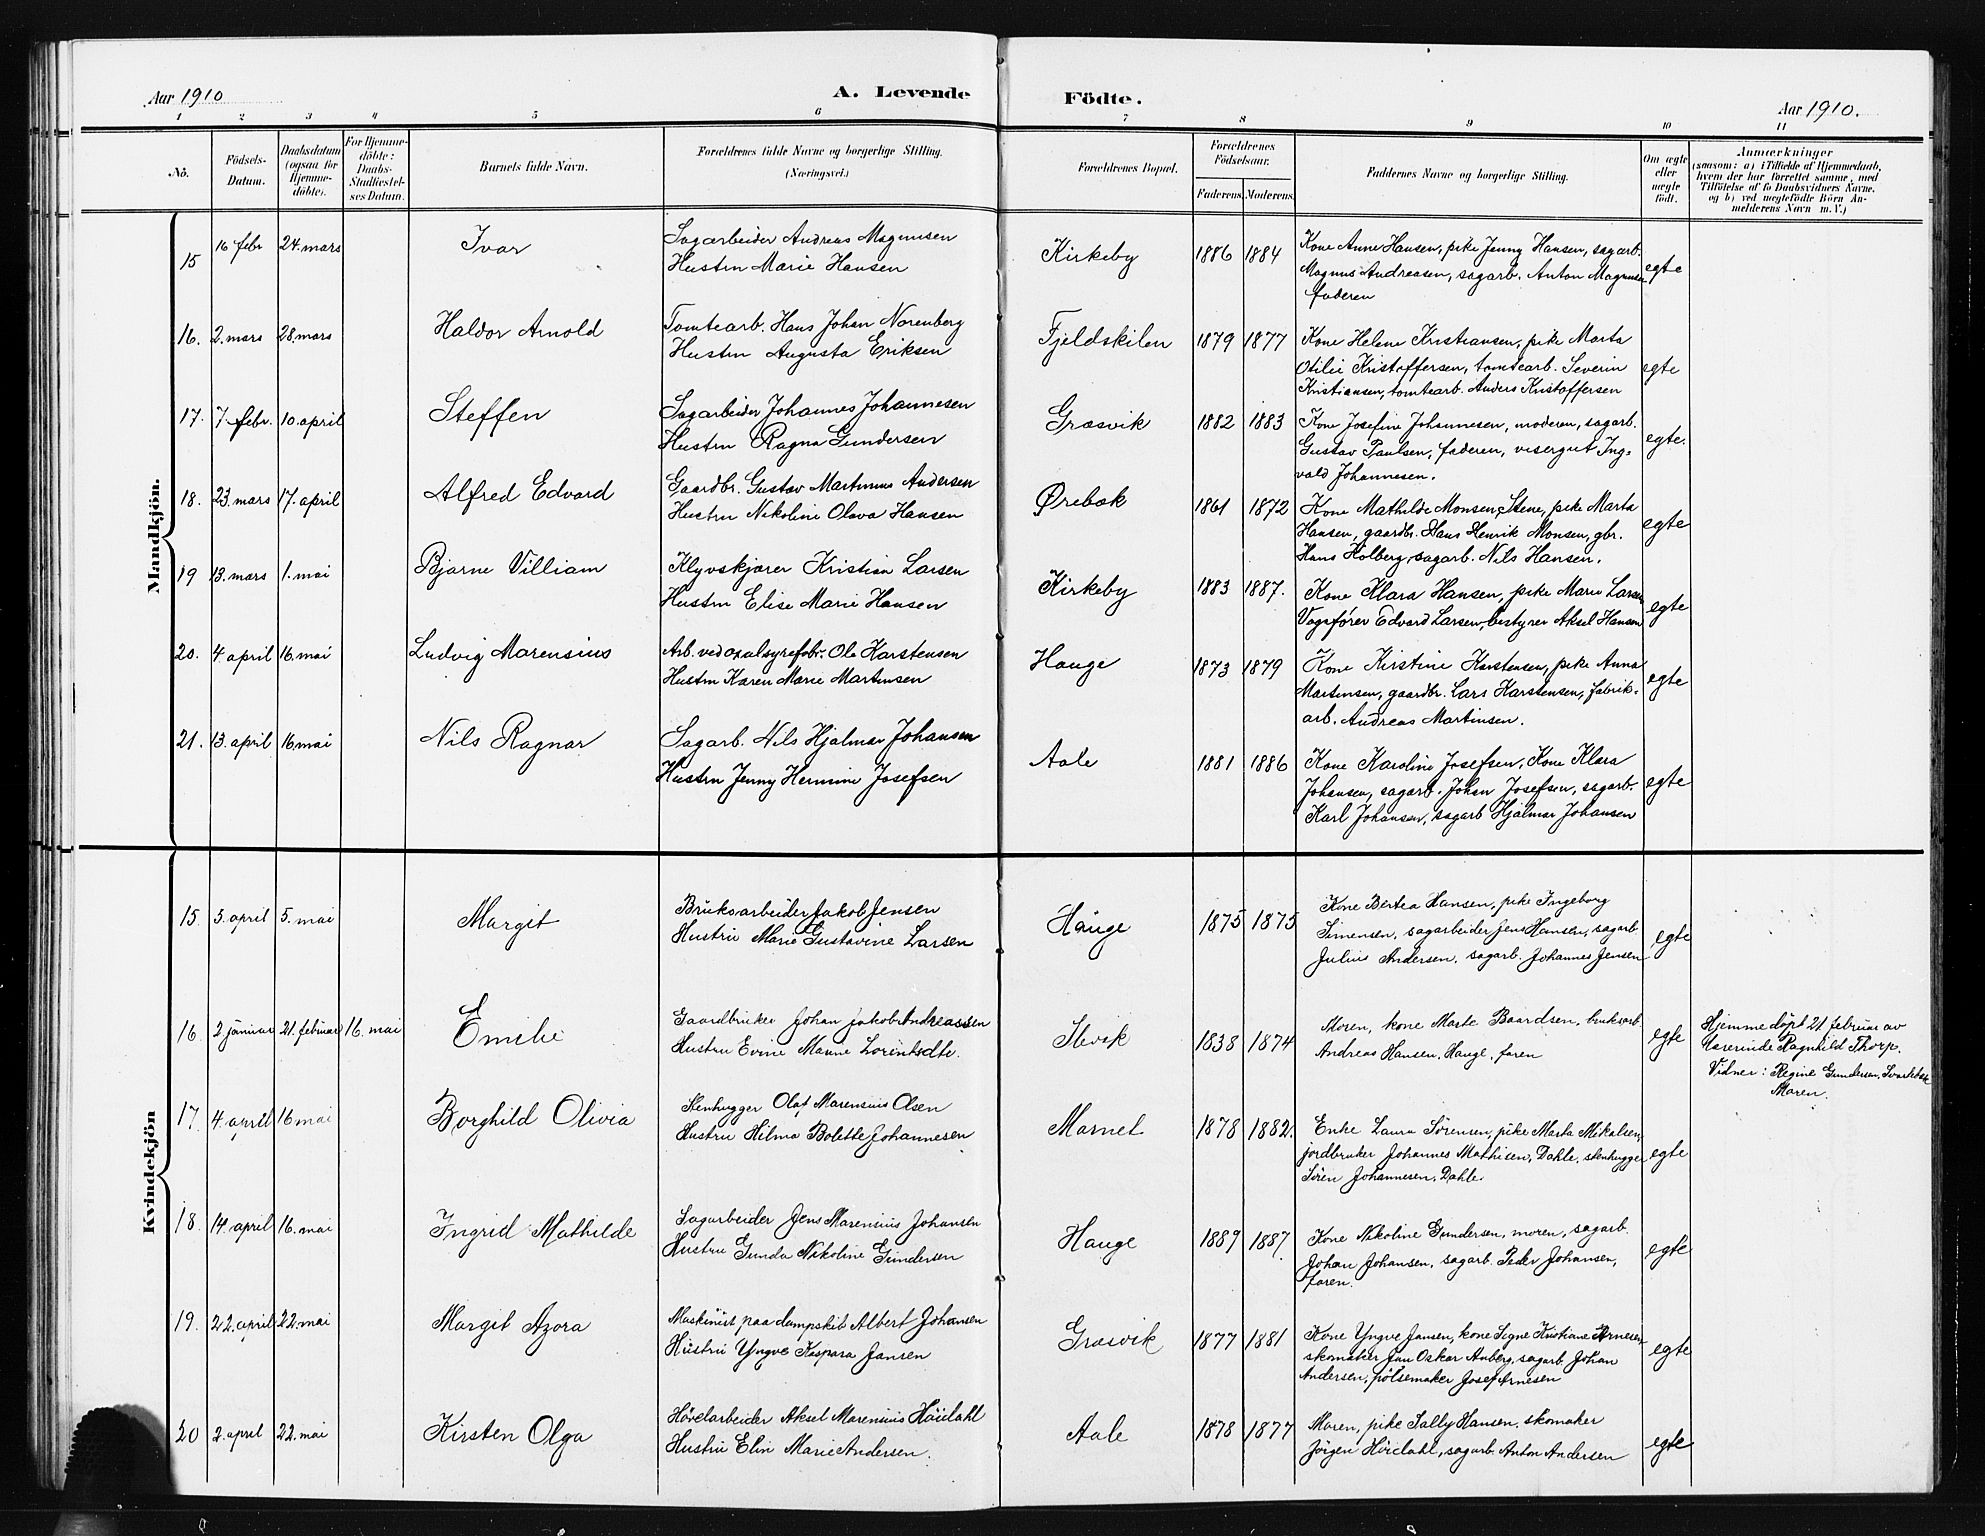 Aar 1910
A. Levende Födte.
Aar 1910.
1 2 3 4 5 6 7 8 9 10 11
No.
Födsels-
Datum.
Daabsdatum
(ogsaa for
Hjemme-
döbte).
For Hjemme-
döbte:
Daabs-
Stadfæstel-
ses Datum.
Barnets fulde Navn.
Forældrenes fulde Navne og borgerlige Stilling.
(Næringsvei.)
Forældrenes Bopæl.
Forældrenes
Födselsaar.
Faderens. Moderens.
Faddernes Navne og borgerlige Stilling.
Om ægte
eller
uægte
födt.
Anmærkninger
(saasom: a) i Tilfælde af Hjemmedaab,
hvem der har forrettet samme, med
Tilföielse af to Daabsvidners Navne,
og b) ved uegtefödte Börn An-
melderens Navn m. V.)
Mandkjön.
15 16 febr 24. mars Ivar
Sagarbeider Andreas Magnusen
Hustru Marie Hansen
Kirkeby 1886 1884
Kone Anne Hansen, pike Jenny Hansen, sagarb.
Magnus Andreasen, sagarb. Anton Magnusen
faderen
egte
16. 2. mars 28. mars Haldor Arnold
Tomtearb. Hans Johan Norenberg
Hustru Augusta Eriksen
Fjeldskilen 1879 1877
Kone Helene Kristiansen, pike Marta
Otilie Kristoffersen, tomtearb. Severin
Kristiansen, tomtearb. Anders Kristoffersen
egte
17. 7. febr. 10. april Steffen
Sagarbeider Johannes Johannesen
Hustru Ragna Gundersen
Græsvik 1882 1883
Kone Josefine Johannesen, moderen, sagarb.
Gustav Paulsen, faderen, visergut Ing-
vald Johannesen.
egte.
18. 23. mars 17. april Alfred Edvard
Gaardbr. Gustav Martinius Andersen
Hustru Nikoline Olava Hansen
Ørebæk 1861 1872
Kone Mathilde Monsen, Stene, pike Marta
Hansen, gaardbr. Hans Henrik Monsen, gbr.
Hans Holberg, sagarb. Nils Hansen.
egte
19 13. mars 1. mai Bjarne Villiam
Klyvskjærer Kristian Larsen
Hustru Elise Marie Hansen
Kirkeby 1883 1887.
Kone Klara Hansen, pike Marie Larsen
Vognfører Edvard Larsen, bestyrer Aksel Hansen
egte
20. 4. april 16. mai Ludvig Marensius
Arb. ved oxalsyrefabr. Ole Karstensen
Hustru Karen Marie Martinsen
Hauge 1873 1879
Kone Kirstine Karstensen, pike Anna
Martinsen, gaardbr. Lars Karstensen, fabrik-
arb. Andreas Martinsen.
egte
21. 13. april 16 mai Nils Ragnar
Sagarb. Nils Hjalmar Johansen
Hustru Jenny Hermine Josefsen
Aale 1881 1886
Kone Karoline Josefsen, Kone Klara
Johansen, sagarb. Johan Josefsen, sagarb.
Karl Johansen, sagarb Hjalmar Johansen
egte
Kvindekjön
15. 5. april 5. mai Margit
Bruksarbeider Jakob Jensen
Hustru Marie Gustavine Larsen
Hauge 1875 1875
Kone Bertea Hansen, pike Ingeborg
Simensen, sagarbeider Jens Hansen, sagarb.
Julius Andersen, sagarb. Johannes Jensen
egte
16. 2 januar 21. februar 16. mai Emilie
Gaardbruker Johan Jakob Andreassen
Hustru Evine Maurine
1838 1874
Moren, kone Marte Baardsen, bruksarb.
Andreas Hansen, Hauge, faren
egte
Hjemmedøpt 21 februar av
Lærerinde Ragnhild Thorp.
Vidner: Regine Gundersen,
Moren.
17. 4. april 16 mai Borghild Olivia
Stenhugger Olaf Marensius Olsen
Hustru Hilma Bolette Johannesen
Marnet 1878 1882.
Enke Laura Sørensen, pike Marta Mikalsen,
jordbruker Johannes Mathisen, Dahle, stenhugger
Søren Johannesen, Dahle.
egte
18. 14. april 16. mai Ingrid Mathilde
Sagarbeider Jens Marensius Johansen
Hustru Gunda Nikoline Gundersen
Hauge 1889 1887
Kone Nikoline Gundersen, moren, sagarb.
Johan Johansen, sagarb. Peder Johansen,
faren.
egte
19. 22. april 22. mai Margit Azora
Maskinist paa dampskib Albert Johansen
Hustru Yngve Kaspara Jansen
Græsvik 1877 1881
Kone Yngve Jansen, kone Signe Kristiane Arnesen
skomaker Jan Oskar Auberg, sagarb. Johan
Andersen, pølsemaker Josef Arnesen
egte
20 2. april 22. mai Kirsten Olga
Høvelarbeider Aksel Marenius Høidahl
Hustru Elin Marie Andersen.
Aale 1878 1877
Moren, pike Sally Hansen, skomaker
Jörgen Høidahl, sagarb. Anton Andersen
egte